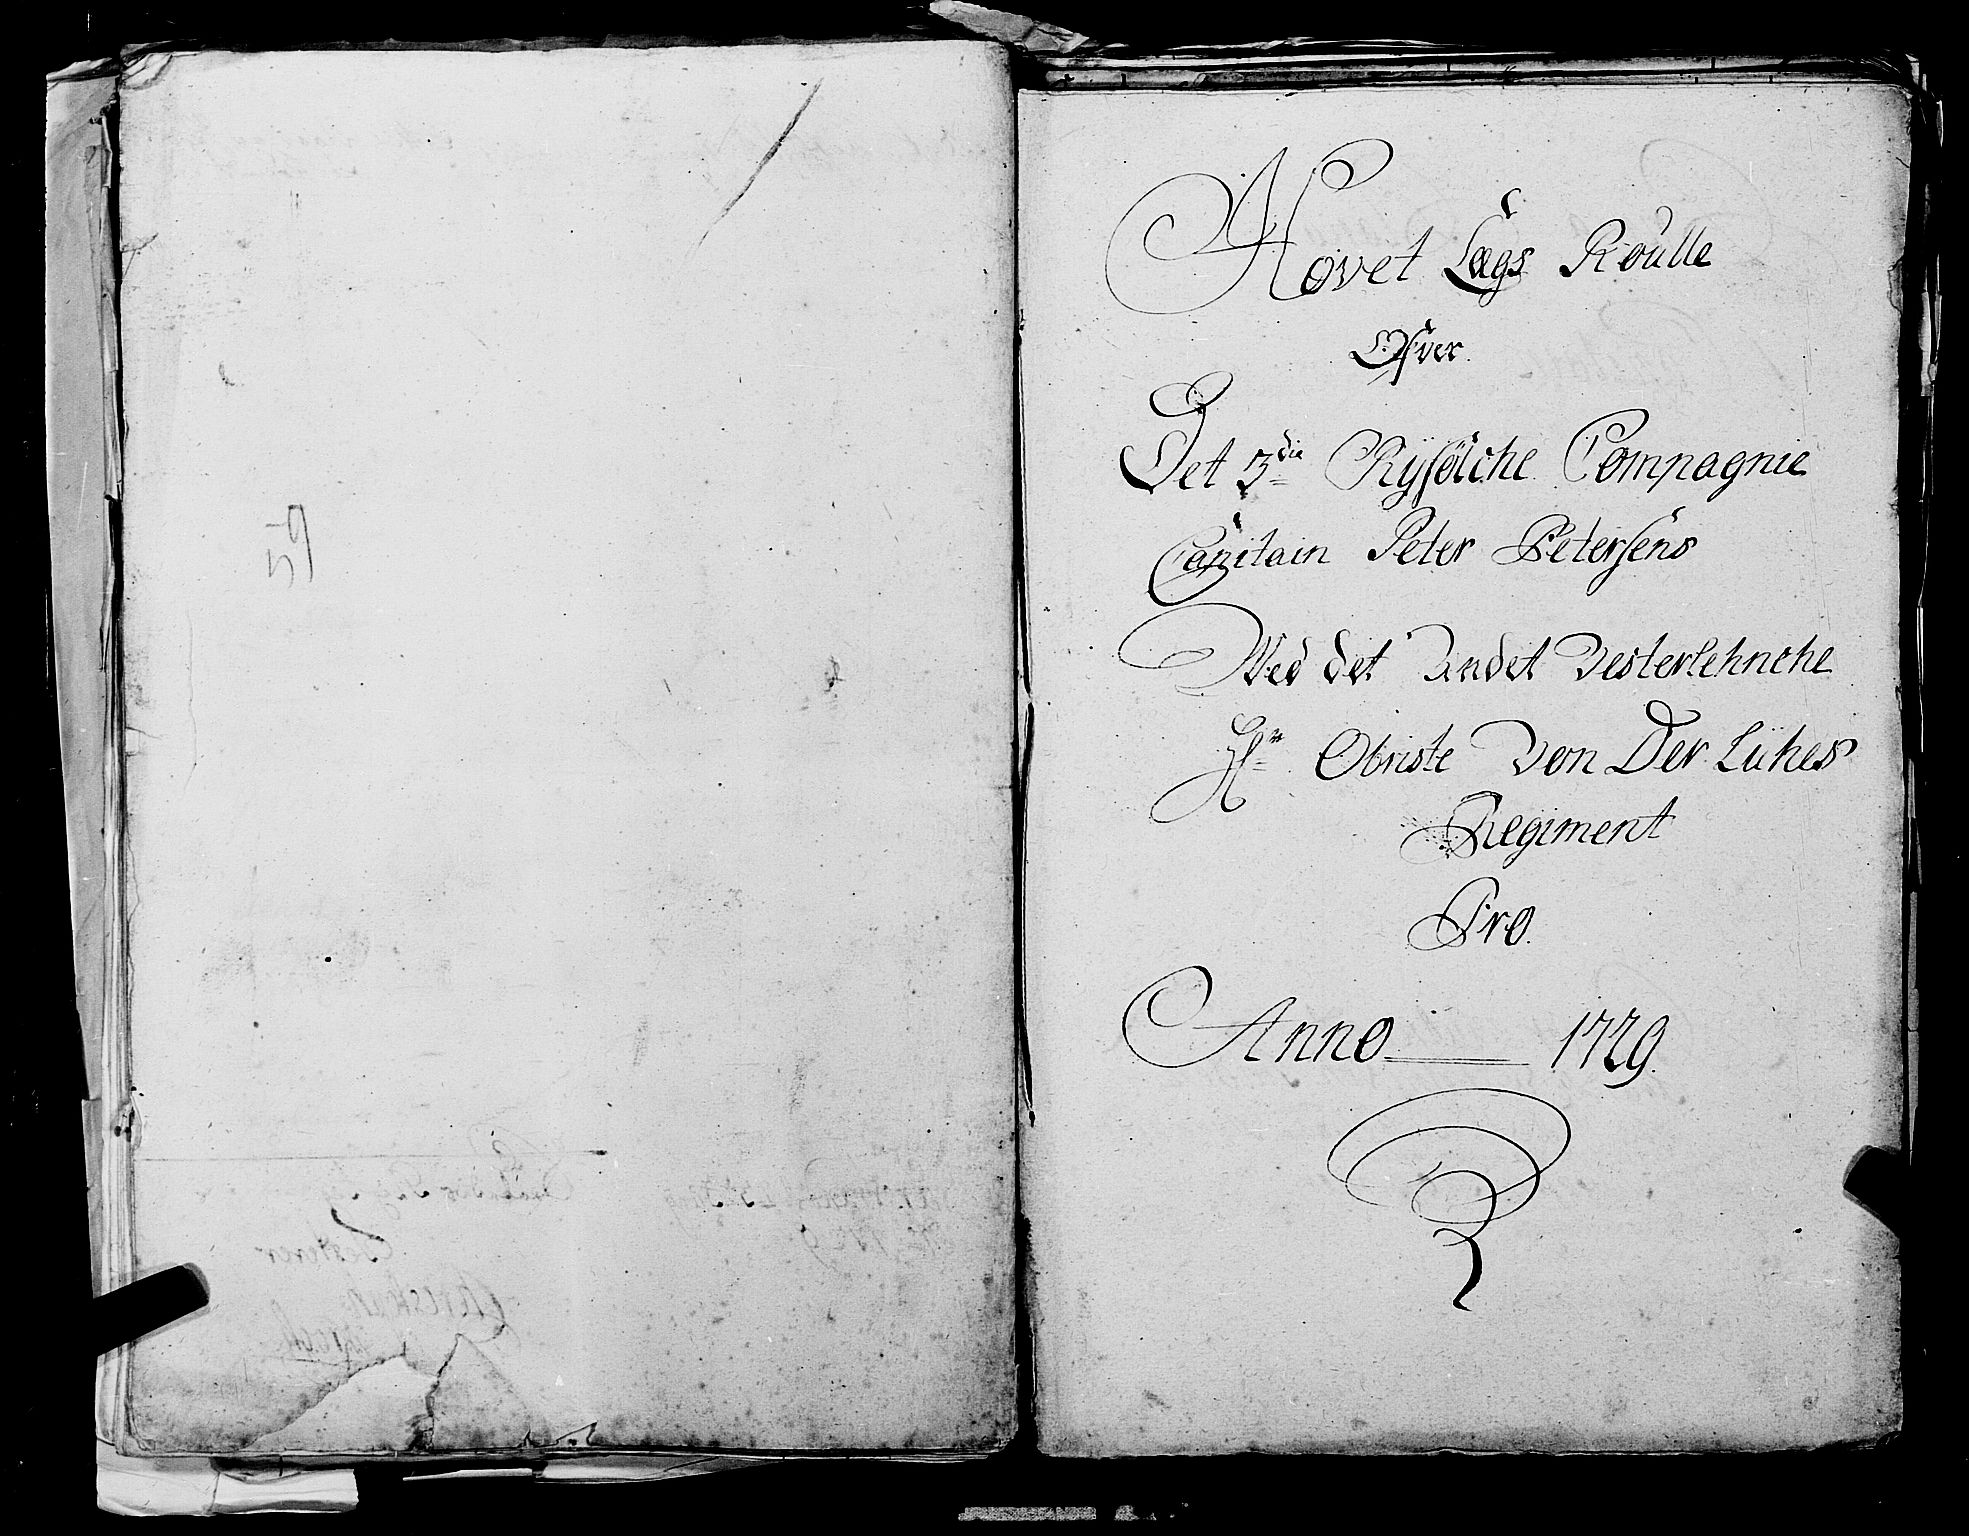 59
Hovet Lægs Roulle
Ofver
Det 3die Ryfölche Compagnie
Capitain Peter Petersens
Wed det Andet Vesterlehnche
Hr Obriste Von Der Lühes
Regiment
Pro.
Anno 1729.